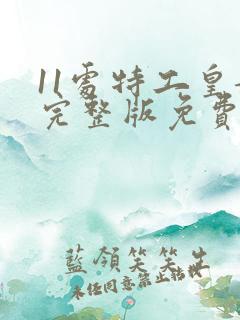 11處特工皇
完整版免費
藍領笑笑生
未经同意禁止转载